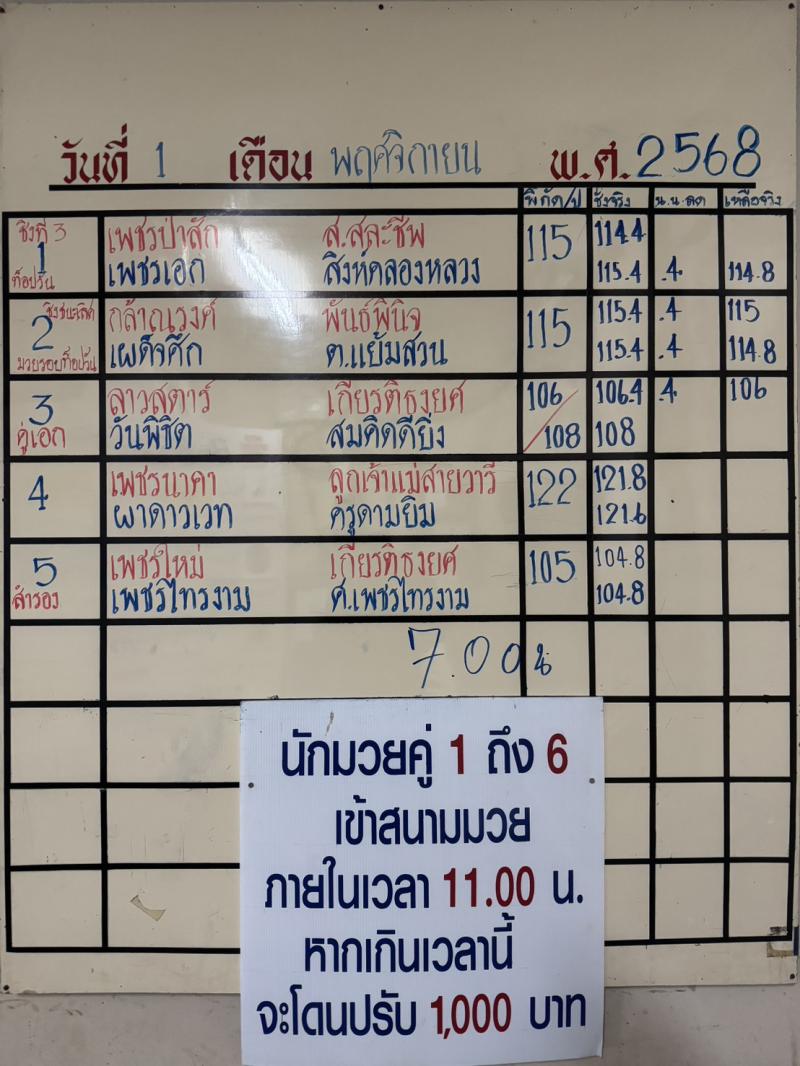 วันที่ 1 เดือน พฤศจิกายน พ.ศ. 2568
พิกัด/ป ชั่งจริง น.น.ลด เหลือจริง
ชิงที่ 3 เพชรป่าสัก ส.สละชีพ 115 114.4
1
ท็อปวัน เพชรเอก สิงห์คลองหลวง 115.4 .4 114.8
กล้าณรงค์ พันธ์พินิจ 115 115.4 .4 115
2
มวยรอบท็อปวัน เผด็จศึก ต.แย้มสวน 115.4 .4 114.8
3 ลาวสตาร์ เกียรติธงยศ 106 106.4 .4 106
คู่เอก วันพิชิต สมคิดดียิ่ง /108 108
4 เพชรนาคา ลูกเจ้าแม่สายวารี 122 121.8
ผาดาวเวท ครูดามยิม 121.6
5 เพชรใหม่ เกียรติธงยศ 105 104.8
สำรอง เพชรไทรงาม ศ.เพชรไทรงาม 104.8
700 น
นักมวยคู่ 1 ถึง 6
เข้าสนามมวย
ภายในเวลา 11.00 น.
หากเกินเวลานี้
จะโดนปรับ 1,000 บาท